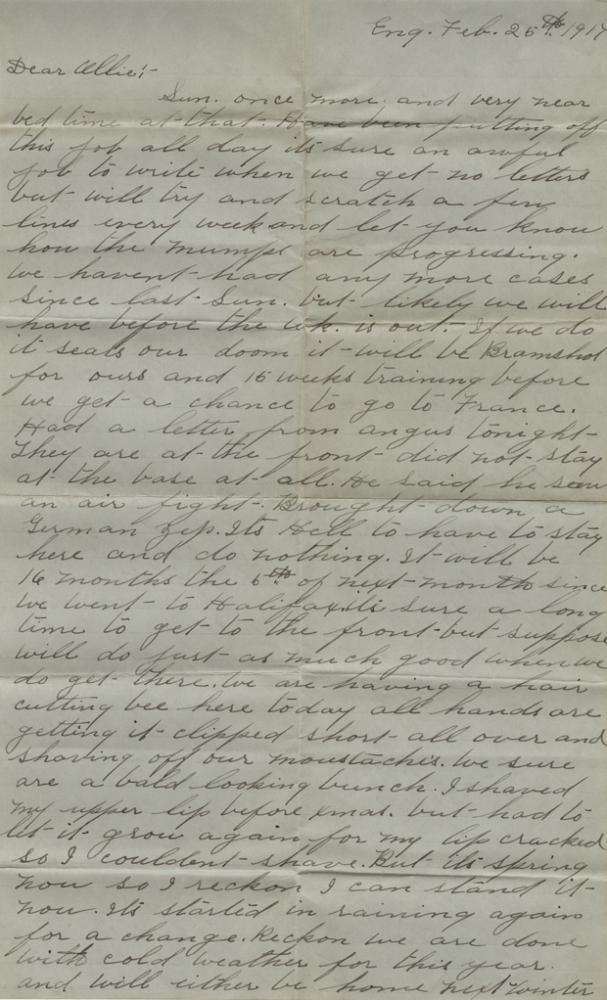 Eng. Feb. 25th. 1917
Dear Allie:-
Sun. once more and very near
bed time at that. Have been putting off
this job all day its sure an awful
job to write when we get no letters
but will try and scratch a few
lines every week and let you know
how the mumps are progressing.
we havent had any more cases
since last Sun. but likely we will
have before the wk. is out. If we do
it seals our doom it will be Bramshot
for ours and 15 weeks training before
we get a chance to go to France.
Had a letter from angus tonight
They are at the front did not stay
at the base at all. He said he seen
an air fight. Brought down a
German zep. Its Hell to have to stay
here and do nothing. It will be
16 months the 5th of next month since
we went to Halifax its sure a long
time to get to the front but suppose
will do just as much good when we
do get there. we are having a hair
cutting bee here today all hands are
getting it clipped short all over and
shaving off our moustaches. We sure
are a bald looking bunch. I shaved
my upper lip before xmas. but had to
let it grow again for my lip cracked
so I couldent shave. But its spring
now so I reckon I can stand it
now. Its started in raining again
for a change. Reckon we are done
with cold weather for this year.
and will either be home next winter